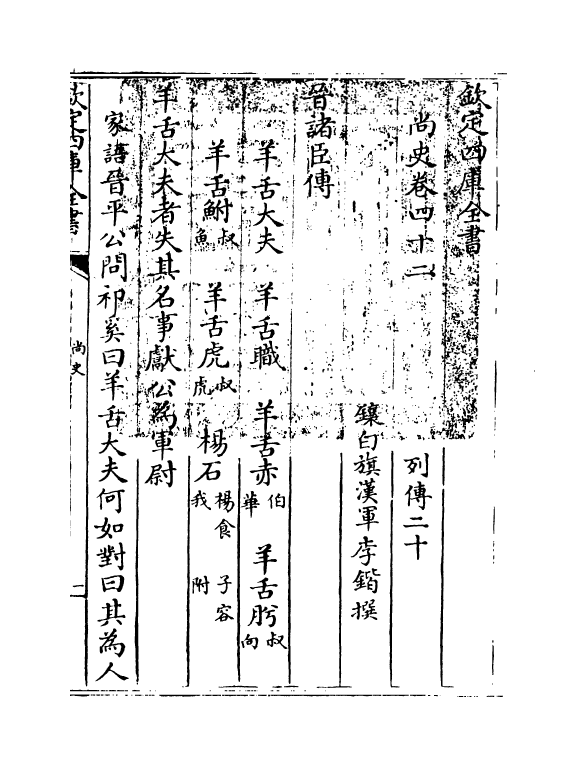 欽定四庫全書
尚史卷四十二　列傳二十
鑲白旗漢軍李鍇撰
晉諸臣傳
羊舌大夫　羊舌職　羊舌赤伯華　羊舌肸叔向
羊舌鮒叔魚　羊舌虎叔虎　楊石楊食我　子容附
羊舌大夫者失其名事獻公為軍尉
家語晉平公問祁奚曰羊舌大夫何如對曰其為人
欽定四庫全書
尚史
二